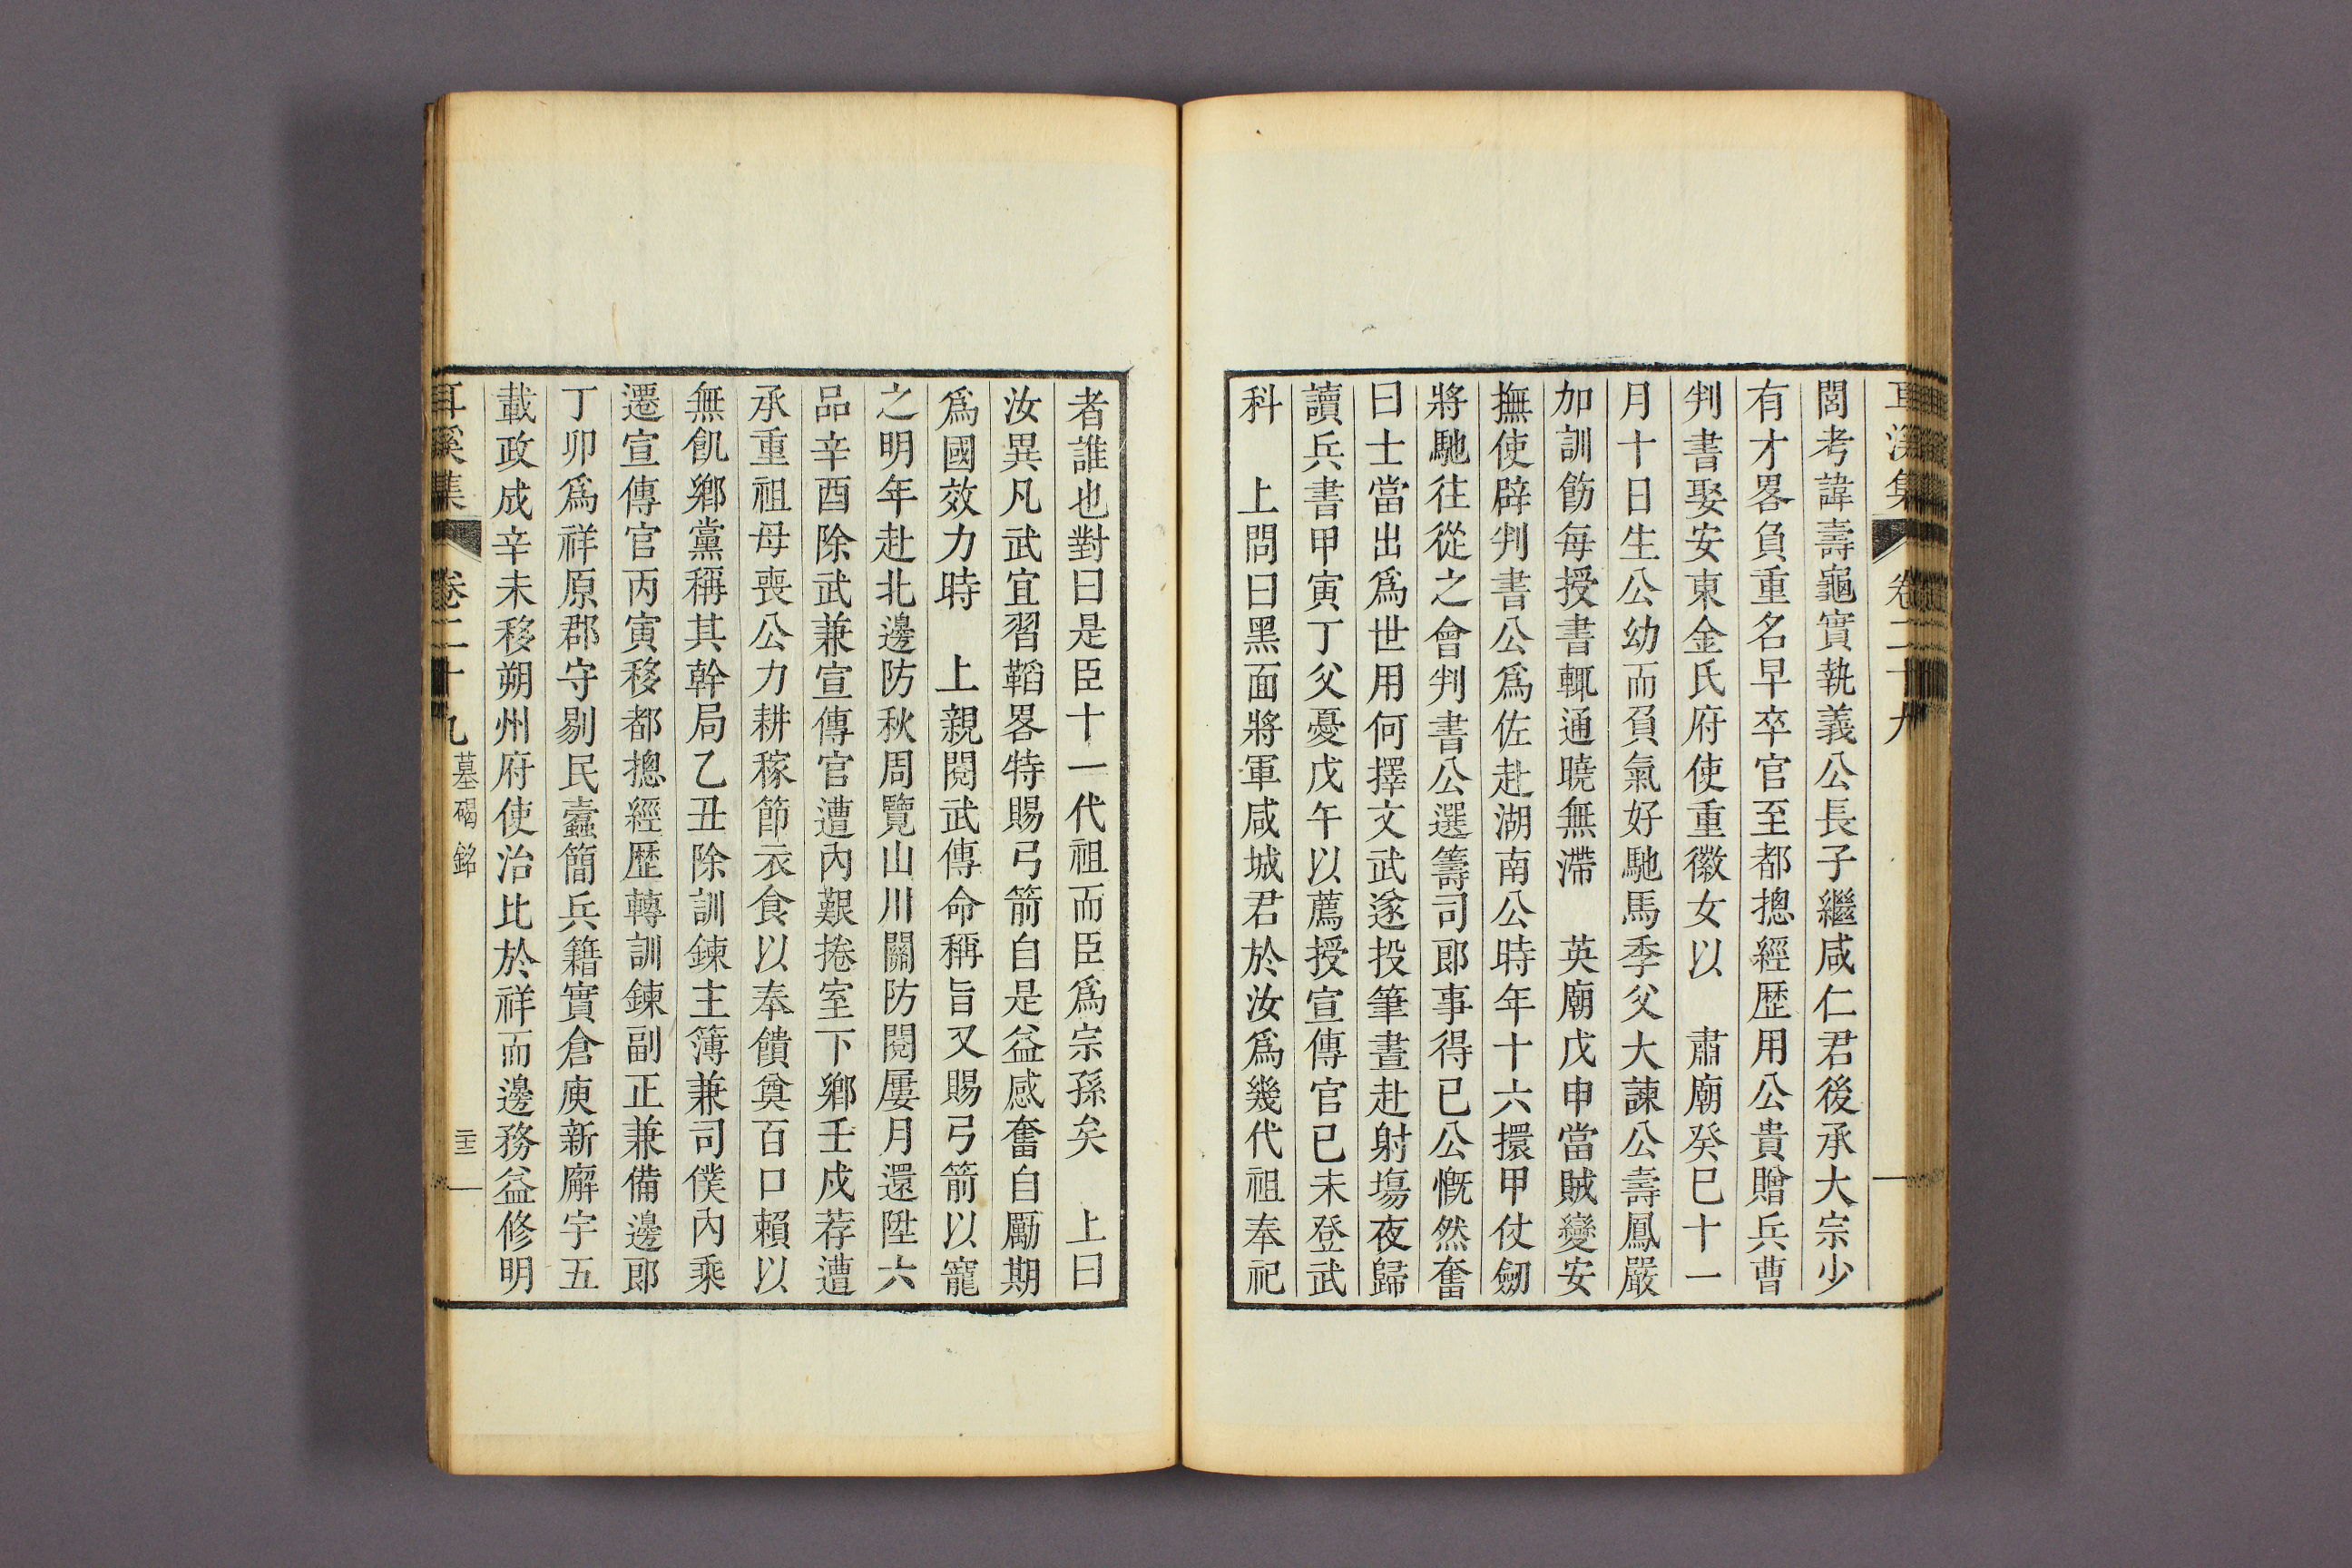 耳溪集 卷二十九
閭考諱壽龜實執義公長子繼咸仁君後承大宗少
有才畧負重名早卒官至都摠經歷用公貴贈兵曹
判書娶安東金氏府使重徽女以 肅廟癸巳十一
月十日生公幼而負氣好馳馬季父大諫公壽鳳嚴
加訓飭每授書輒通曉無滯 英廟戊申當賊變安
撫使辟判書公爲佐赴湖南公時年十六擐甲仗劒
將馳往從之會判書公選籌司郞事得已公慨然奮
曰士當出爲世用何擇文武遂投筆晝赴射塲夜歸
讀兵書甲寅丁父憂戊午以薦授宣傳官已未登武
科 上問曰黑面將軍咸城君於汝爲幾代祖奉祀
者誰也對曰是臣十一代祖而臣爲宗孫矣 上曰
汝異凡武宜習韜畧特賜弓箭自是益感奮自勵期
爲國效力時 上親閱武傳命稱旨又賜弓箭以寵
之明年赴北邊防秋周覽山川關防閱屢月還陞六
品辛酉除武兼宣傳官遭內艱捲室下鄕壬戌荐遭
承重祖母喪公力耕稼節衣食以奉饋奠百口賴以
無飢鄕黨稱其幹局乙丑除訓鍊主簿兼司僕內乘
遷宣傳官丙寅移都摠經歷轉訓鍊副正兼備邊郞
丁卯爲祥原郡守剔民蠹簡兵籍實倉庾新廨宇五
載政成辛未移朔州府使治比於祥而邊務益修明
耳溪集 卷二十九 墓碣銘 二十三